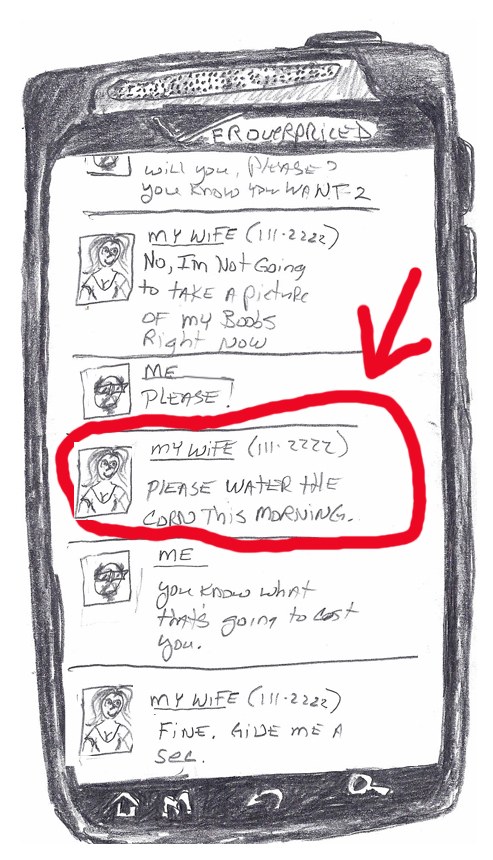 FROVERPRICED
will you, PLEASE?
you know you WANT 2
MY WIFE (111-2222)
No, I'm Not Going
to TAKE A picture
OF my Boobs
Right Now
ME
PLEASE!
MY WIFE (111-2222)
PLEASE WATER THE
CORN THIS MORNING.
ME
you know what
that's going to cost
you.
MY WIFE (111-2222)
FINE. GIVE ME A
SEC.
M